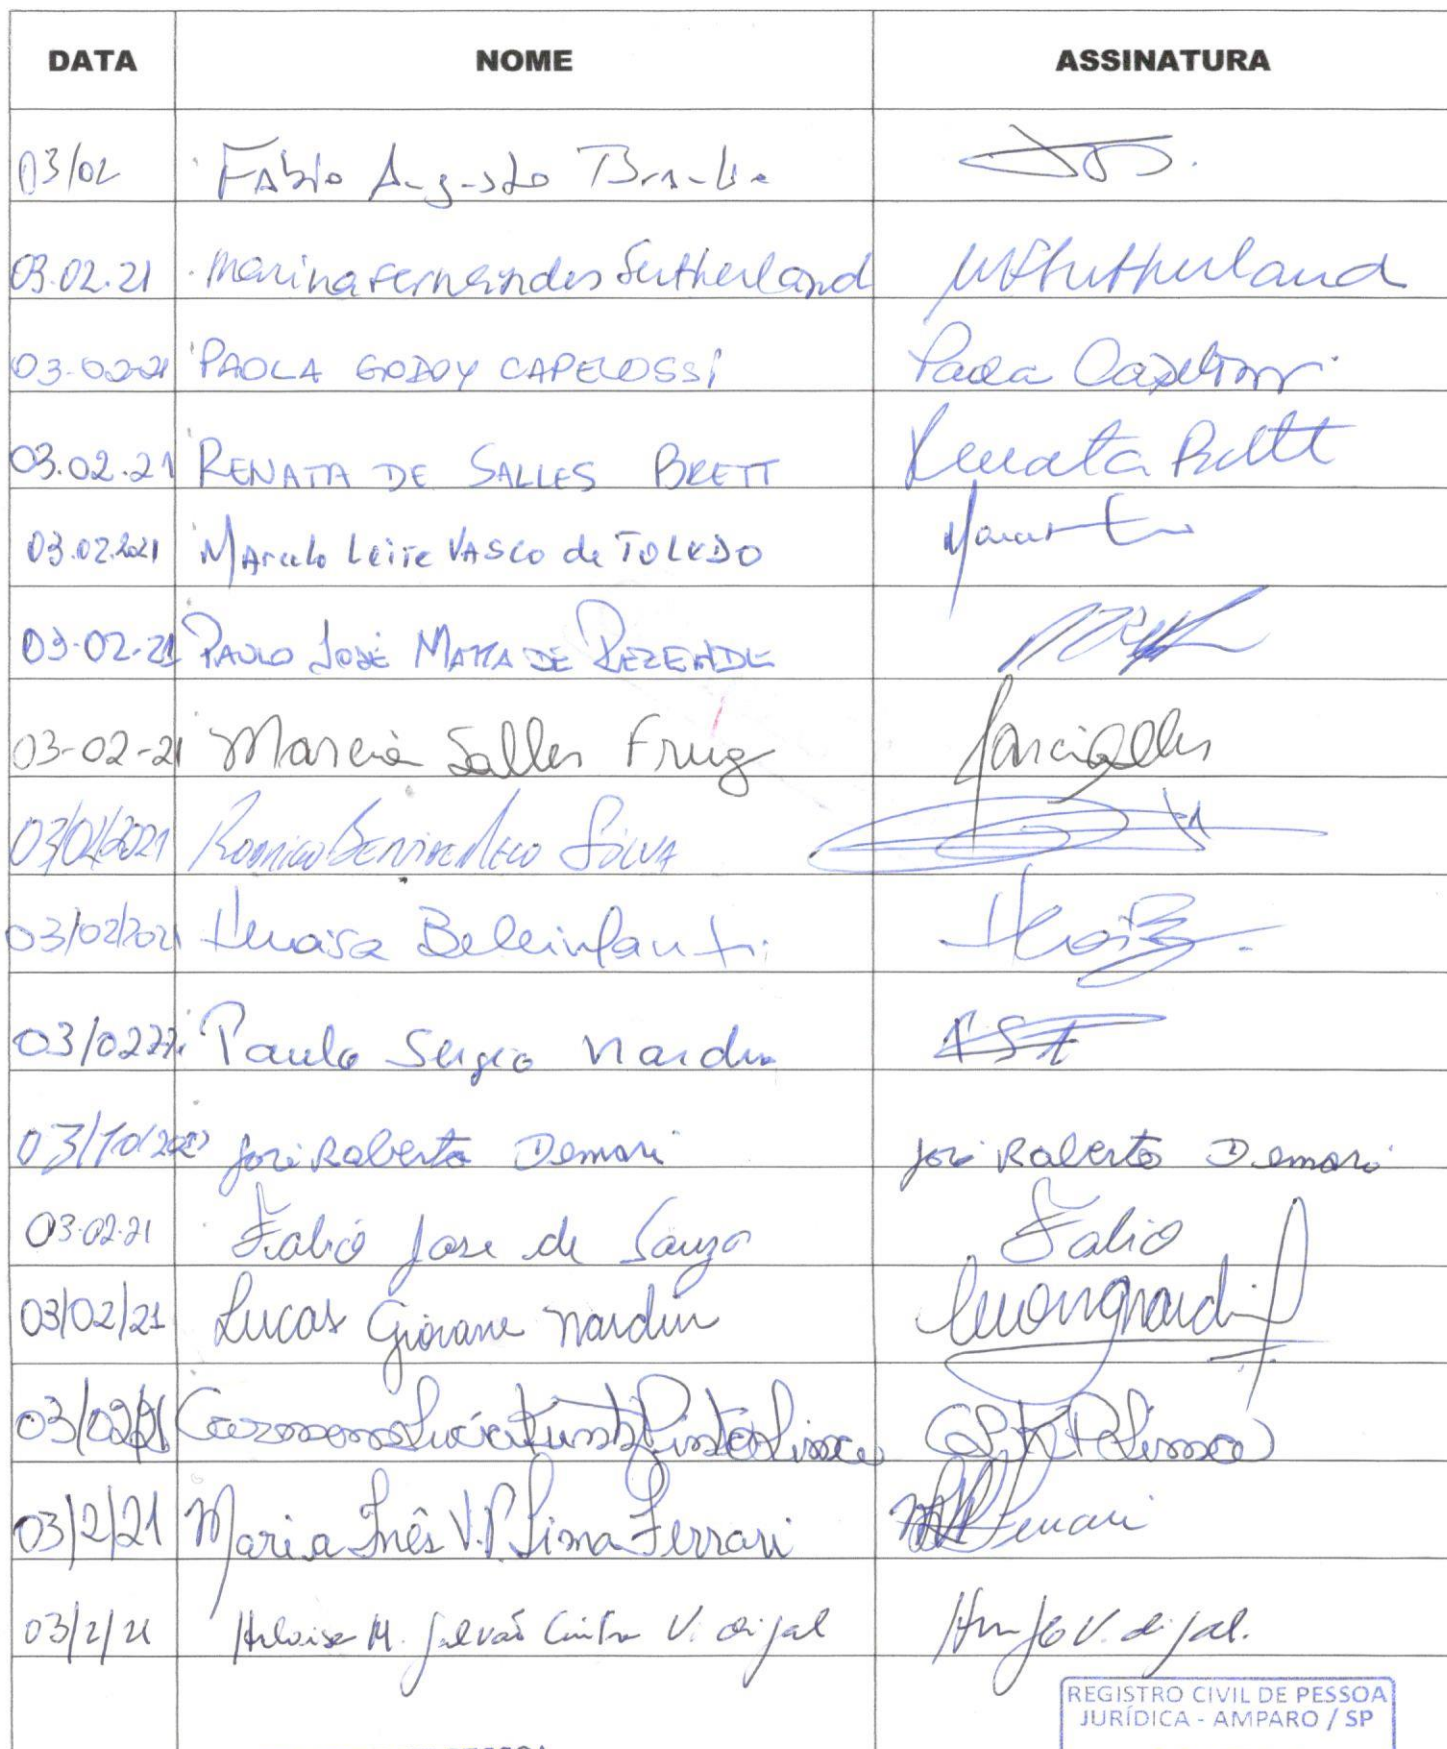 DATA NOME ASSINATURA
03/02 Fábio Augusto
03.02.21 Marina Fernandes Sutherland MFSutherland
03-02-21 PAOLA GODOY CAPELOSSI Paola Capelossi
03.02.21 RENATA DE SALLES BRETT Renata Brett
03.02.2021 Marcelo Leite VASCO de TOLEDO
03-02-21 PAULO JOSÉ MATTA DE REZENDE
03-02-21 Marcia Salles Frug Marcia Salles
03/02/2021 Rodrigo SILVA
03/02/2021 Heloisa Belinfanti
03/02 Paulo Sergio Nardin
03/10/202 José Roberto Demori José Roberto Demori
03.02.21 Fabio Jose de Souza Fabio
03/02/21 Lucas Giovane Nardin
03/02/21 Pinto Lima
03/2/21 Maria Inês V.P. Lima Ferrari Ferrari
03/2/21 Heloisa M. Galvão Cintra V.
REGISTRO CIVIL DE PESSOA
JURÍDICA - AMPARO / SP